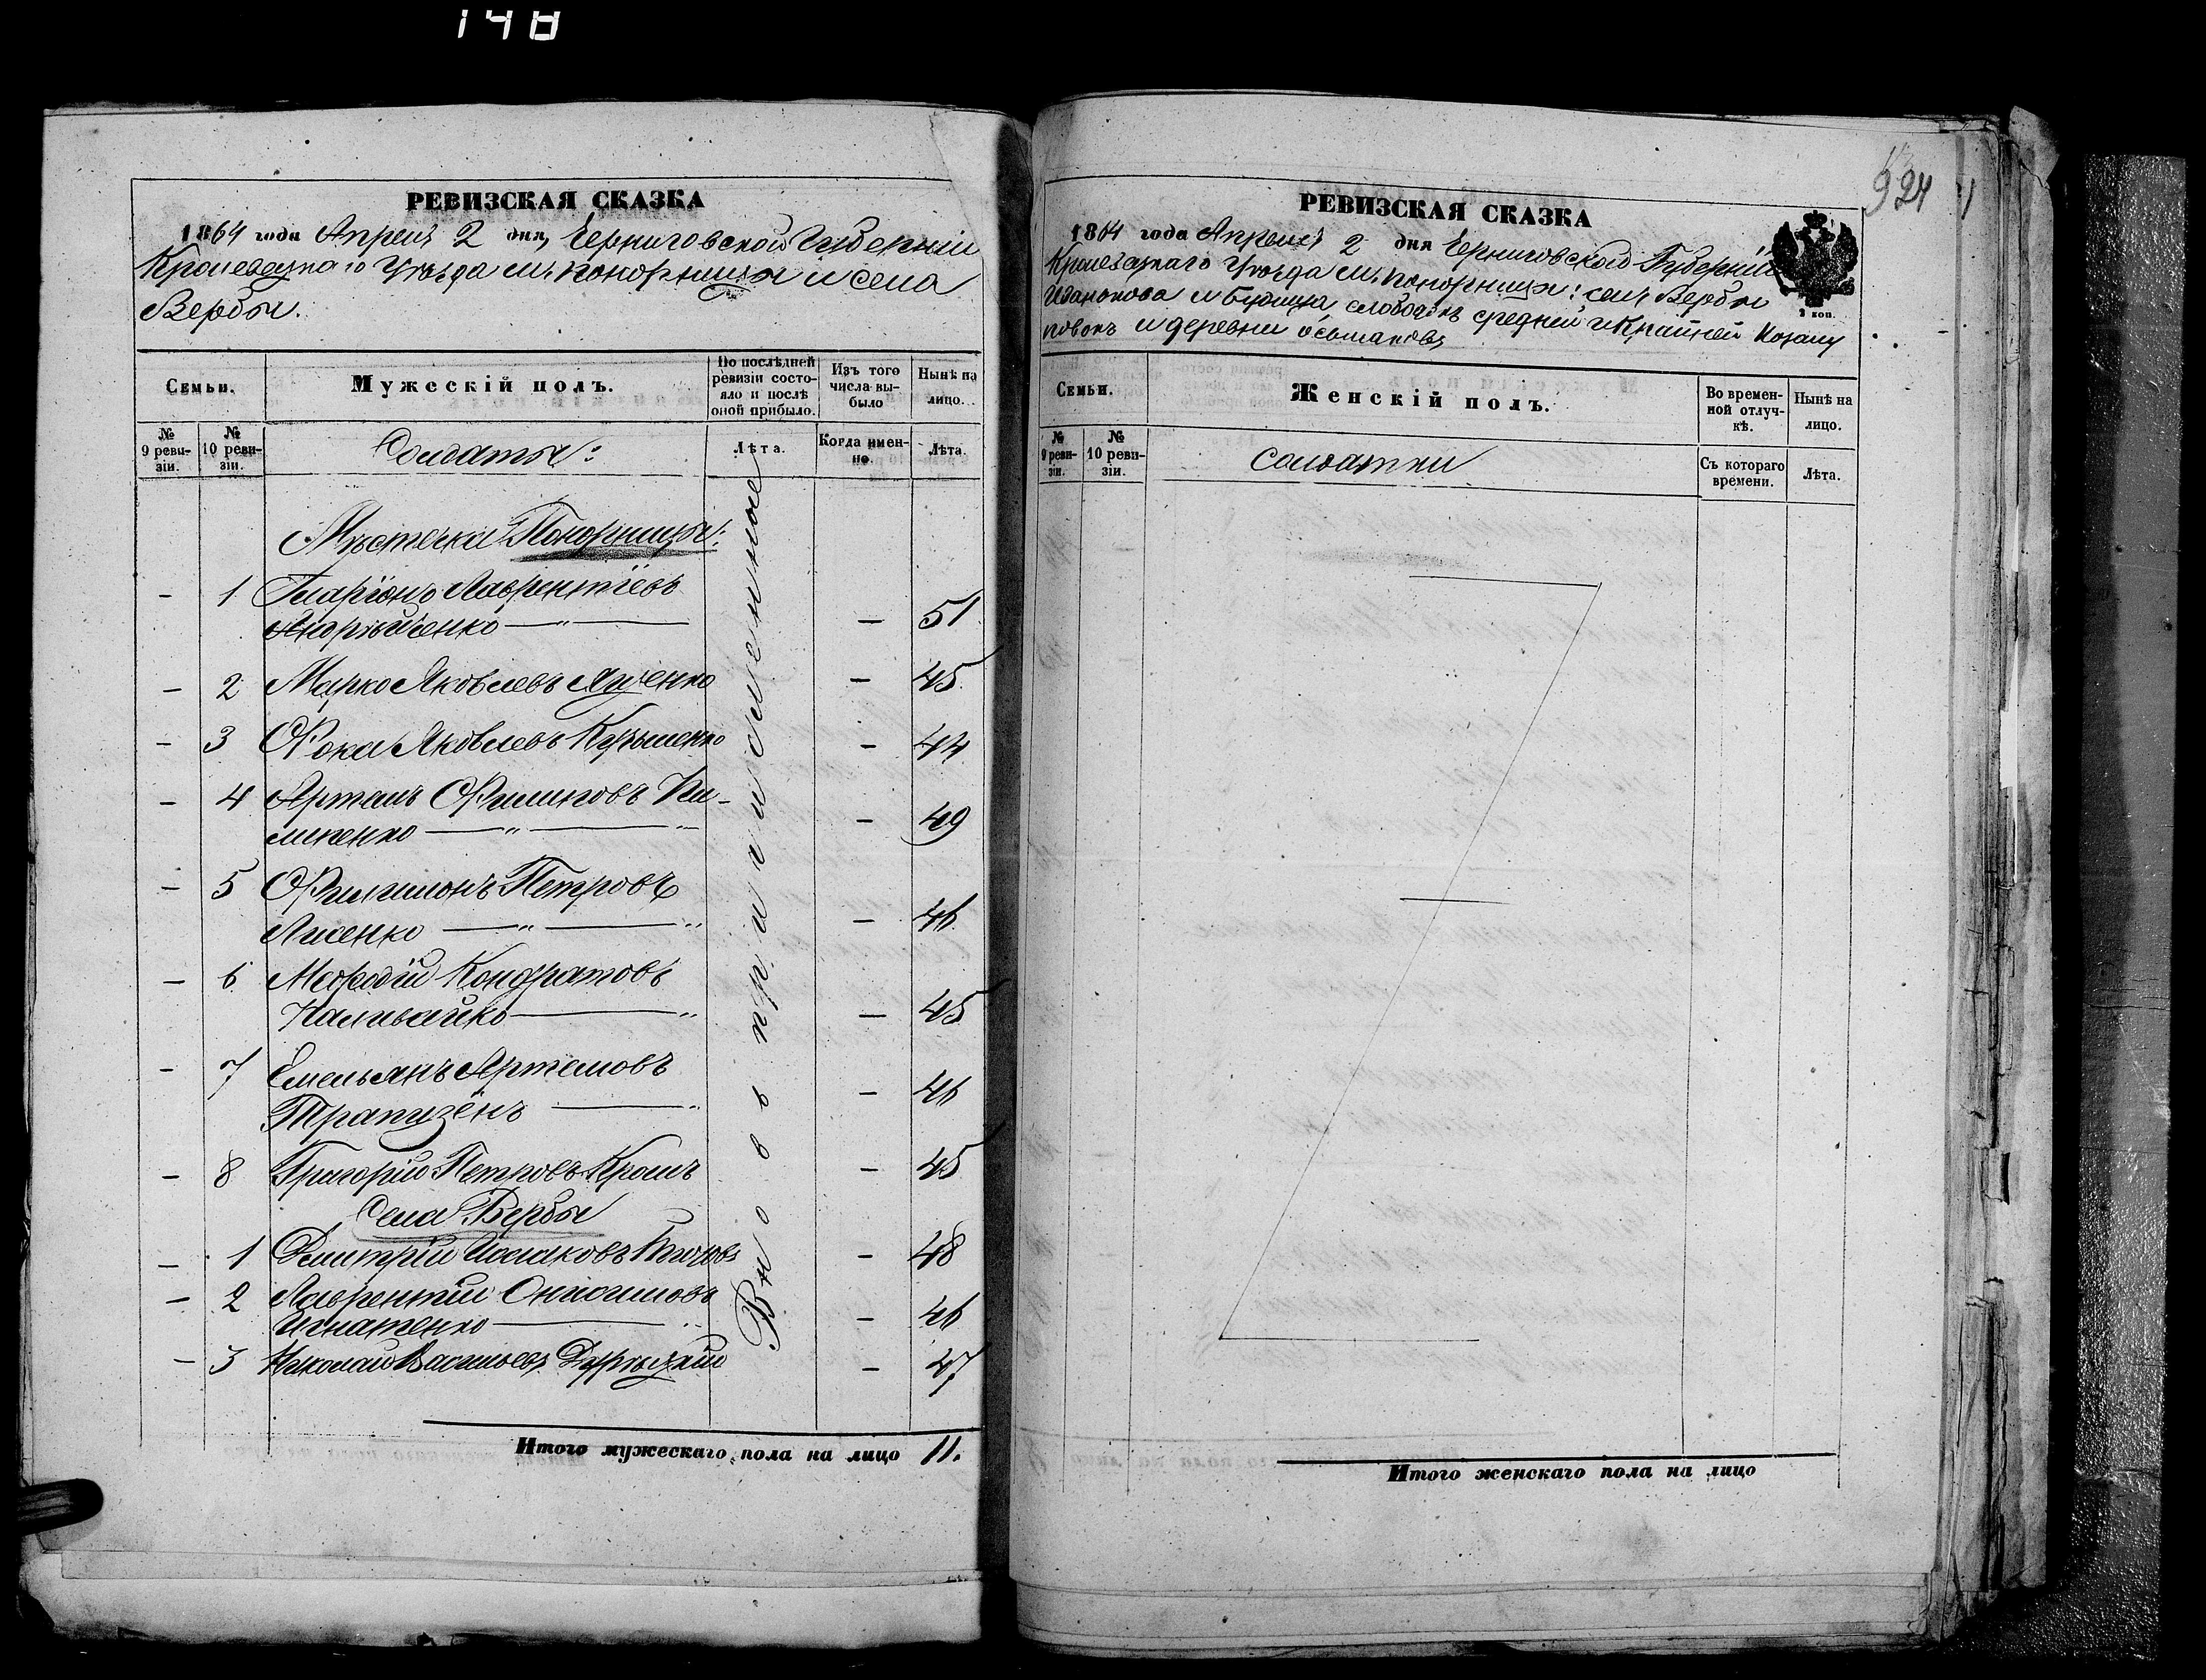 148
РЕВИЗСКАЯ СКАЗКА
1864 года Апреля 2 дня, Черниговской Губерніи
Кролевецкаго Уѣзда м. Понорницы и села
Вербы.
Семьи.
Мужескій полъ.
По послѣдней ревизіи состояло и послѣ оной прибыло.
Изъ того числа выбыло
Нынѣ на лицо.
№ 9 ревизіи.
№ 10 ревизіи.
Солдаты:
Лѣта.
Когда именно.
Лѣта.
Мѣстечка Понорницы:
Вновь причисленное
— 1 Иларіонъ Лаврентіевъ
Андрѣйченко — „ — — 51
— 2 Марко Яковлевъ Яценко — 45
— 3 Фока Яковлевъ — 44
— 4 Артемъ Филиповъ Пи-
липенко — „ — „ — 49
— 5 Филимонъ Петровъ
Лисенко — „ — „ — 46
— 6 Мефодій Кондратовъ
Наливайко — „ — 45
— 7 Емельянъ Артемовъ
— „ — 46
— 8 Григорій Петровъ Кромъ — 45
Села Вербы
— 1 Дмитрій Исаковъ — 48
— 2 Лаврентій Онисимовъ
Игнатенко — „ — 46
— 3 Николай Васильевъ — 47
Итого мужескаго пола на лицо 11.
924
РЕВИЗСКАЯ СКАЗКА
1864 года Апреля 2 дня Черниговской Губерніи
Кролевецкаго Уѣзда м. Понорницы: селъ Вербы
Иванькова и Будища, слободокъ средней и Крайней
и деревни Осьмаковъ
2 коп.
Семьи.
Женскій полъ.
Во временной отлучкѣ.
Нынѣ на лицо.
№ 9 ревизіи.
№ 10 ревизіи.
солдатки
Съ котораго времени.
Лѣта.
Итого женскаго пола на лицо